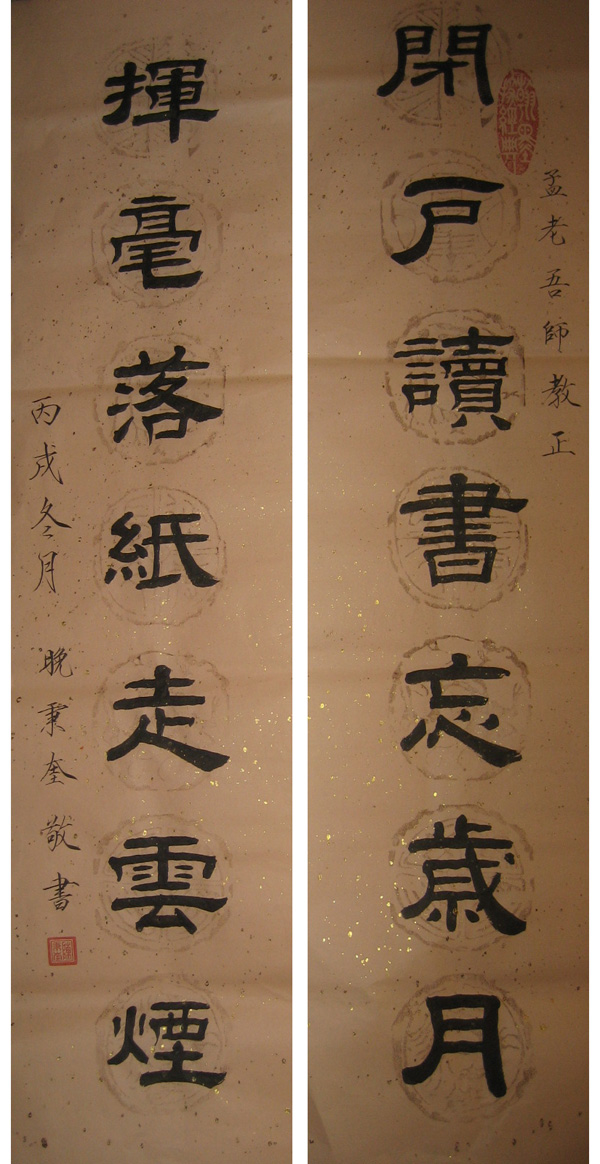 孟老吾師教正
閉戶讀書忘歲月
揮毫落紙走雲煙
丙戌冬月 晚秉奎敬書